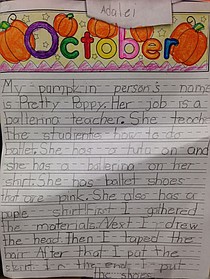 Adalei
October
My pumpkin person's name
is Pretty Poppy. Her job is a
ballerina teacher. She teach
the students how to do
ballet. She has a tutu on and
she has a ballerina on her
shirt. She has ballet shoes
that are pink. She also has a
shirt. First I gathered
the materials. Next I drew
the head. then I taped the
hair. After that I put the
shirt. In the end I put
the shoes.